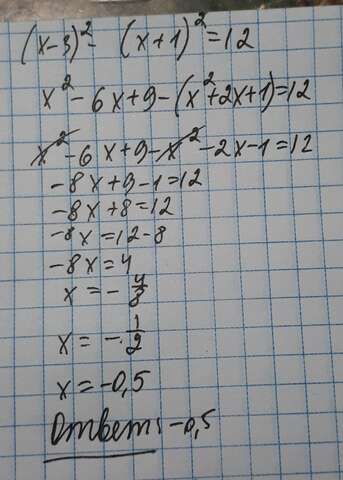 (x-3)² - (x+1)² = 12
x² - 6x + 9 - (x² + 2x + 1) = 12
x² - 6x + 9 - x² - 2x - 1 = 12
-8x + 9 - 1 = 12
-8x + 8 = 12
-8x = 12 - 8
-8x = 4
x = - 4/8
x = - 1/2
x = -0,5
Ответ: -0,5